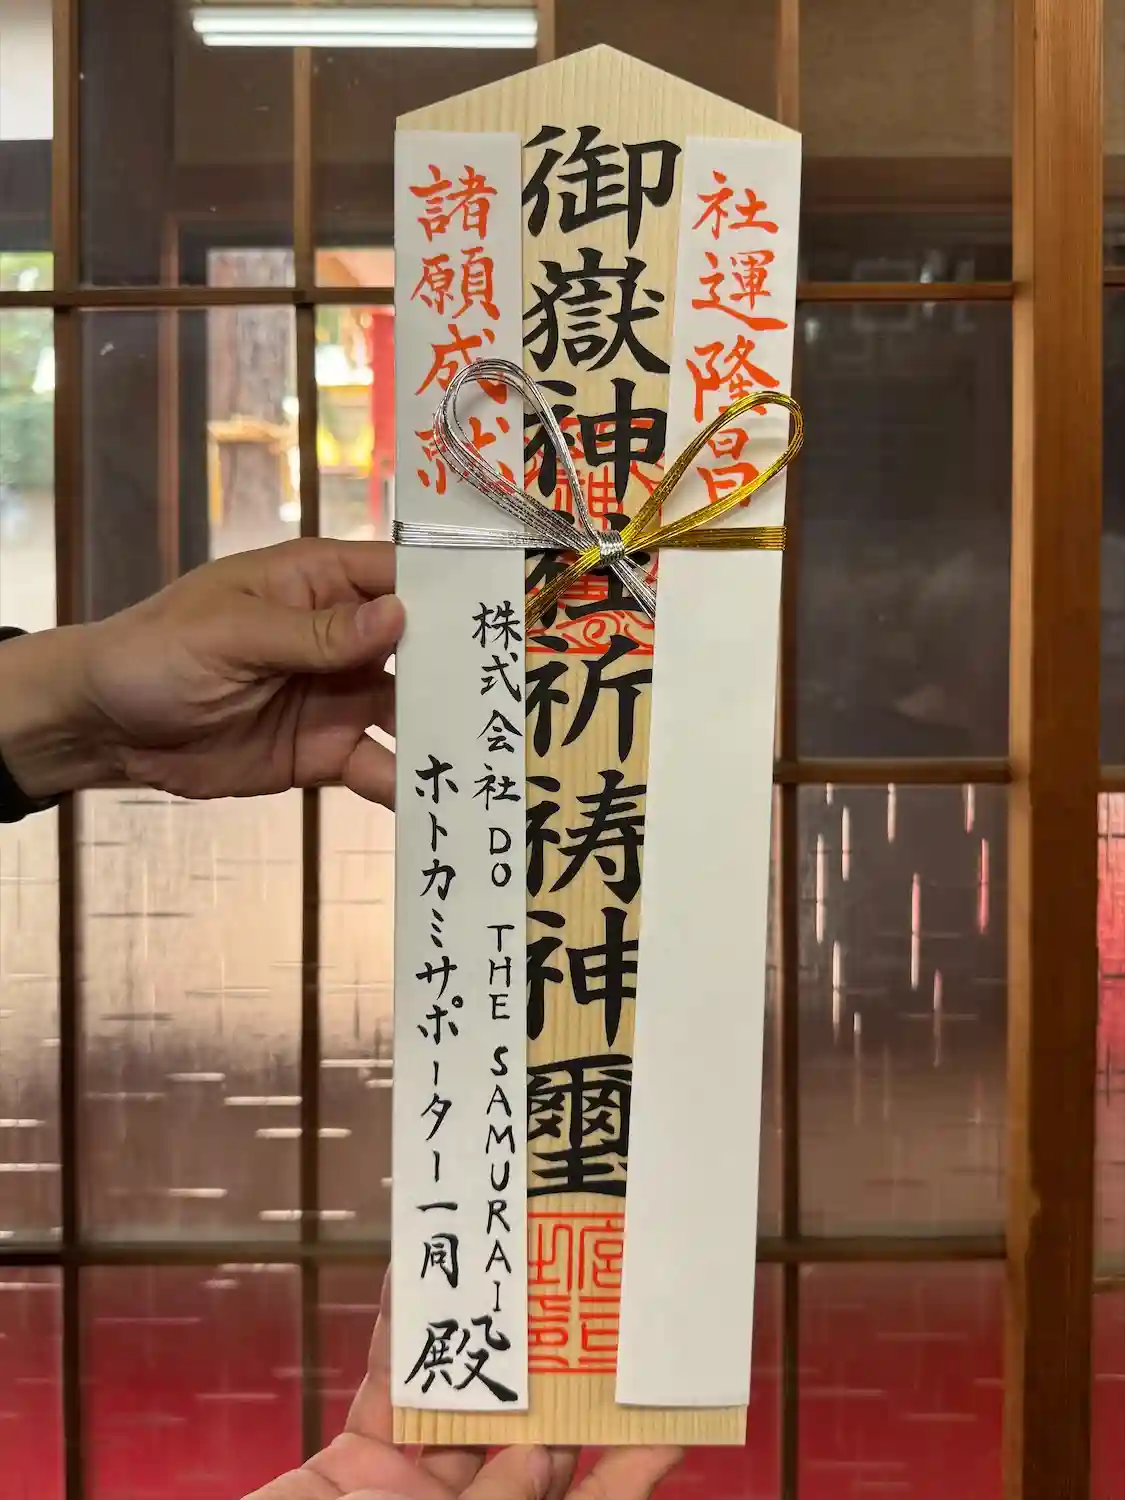 社運隆昌
御嶽神社祈祷神璽
諸願成就
株式会社 DO THE SAMURAI
ホトカミサポーター一同 殿